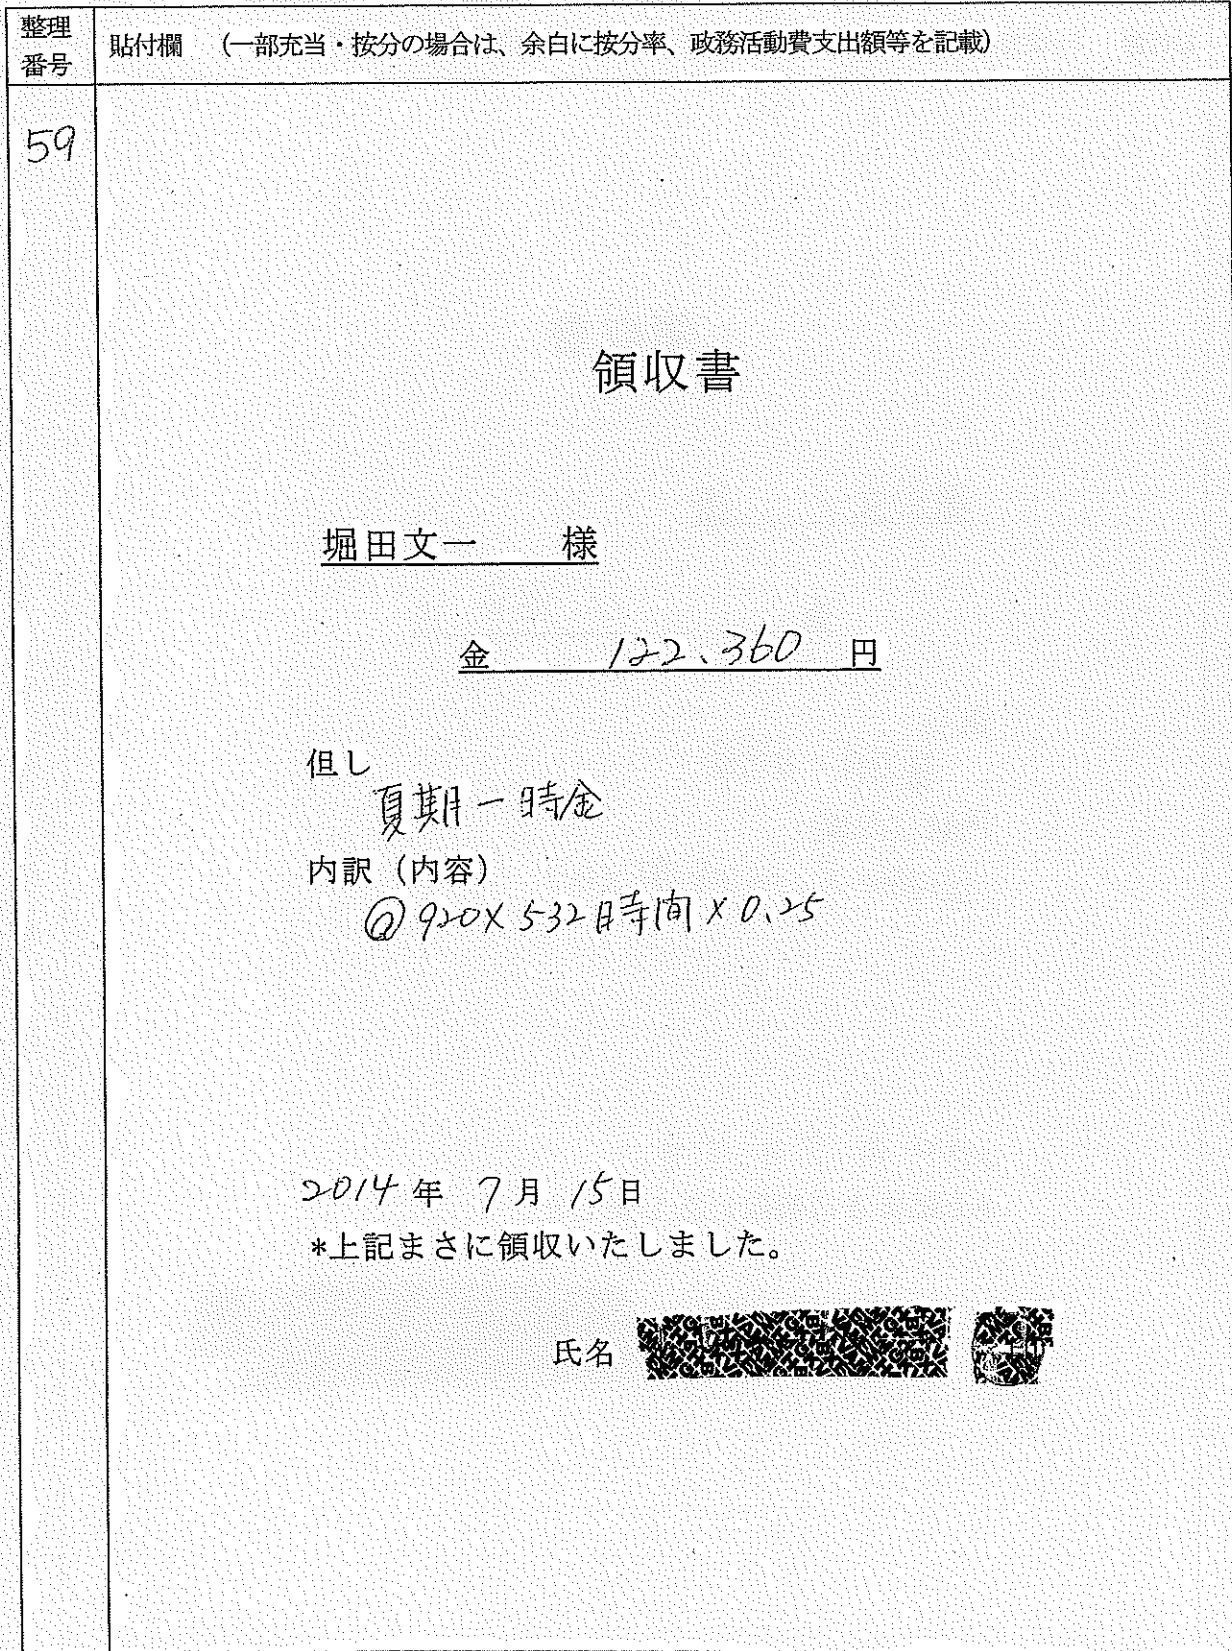 整理番号
貼付欄 (一部充当・按分の場合は、余白に按分率、政務活動費支出額等を記載)
59
領収書
堀田文一 様
金 122,360 円
但し
夏期一時金
内訳(内容)
@920×532時間×0.25
2014年 7月 15日
*上記まさに領収いたしました。
氏名